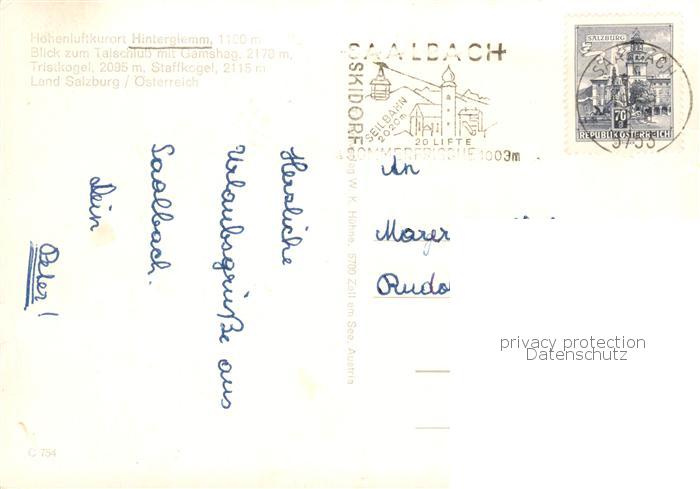 Höhenluftkurort Hinterglemm, 1100 m
Blick zum Talschluß mit Gamshag, 2178 m,
Tristkogel, 2095 m, Staffkogel, 2115 m
Land Salzburg / Österreich
SAALBACH
SKIDORF
SEILBAHN
2020m
20 LIFTE
SOMMERFRISCHE 1003m
SALZBURG
70 g
REPUBLIK ÖSTERREICH
5753
Herzliche
Urlaubsgrüße aus
Saalbach.
Dein
Peter!
Verlag W. K. Hühne, 5700 Zell am See, Austria
An
Rudo
privacy protection
Datenschutz
C 754